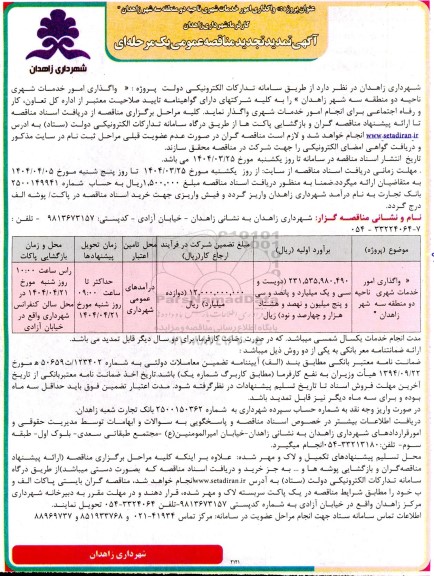 عنوان پروژه: « واگذاری امور خدمات شهری ناحیه دو منطقه سه شهر زاهدان »
کارفرما: شهرداری زاهدان
آگهی تمدید تجدید مناقصه عمومی یک مرحله‌ای
شهرداری زاهدان
شهرداری زاهدان در نظر دارد از طریق سامانه تدارکات الکترونیکی دولت پروژه : « واگذاری امور خدمات شهری
ناحیه دو منطقه سه شهر زاهدان » را به کلیه شرکتهای دارای گواهینامه تایید صلاحیت معتبر از اداره کل تعاون، کار
و رفاه اجتماعی برای انجام امور خدمات شهری واگذار نماید. کلیه مراحل برگزاری مناقصه از دریافت اسناد مناقصه
تا ارائه پیشنهاد مناقصه گران و بازگشایی پاکت ها از طریق درگاه سامانه تدارکات الکترونیکی دولت (ستاد) به آدرس
www.setadiran.ir انجام خواهد شد و لازم است مناقصه گران در صورت عدم عضویت قبلی مراحل ثبت نام در سایت مذکور
و دریافت گواهی امضای الکترونیکی را جهت شرکت در مناقصه محقق سازند.
تاریخ انتشار اسناد مناقصه در سامانه تا روز یکشنبه مورخ ۱۴۰۴/۰۳/۲۵ می باشد.
مهلت زمانی دریافت اسناد مناقصه از سایت: از روز یکشنبه مورخ ۱۴۰۴/۰۳/۲۵ تا روز پنج شنبه مورخ ۱۴۰۴/۰۴/۰۵
به متقاضیان ارائه میگردد.ضمنا به منظور دریافت اسناد مناقصه مبلغ ۱،۵۰۰،۰۰۰ریال به حساب شماره ۲۵۰۰۱۴۹۹۴۱
بانک تجارت به نام درآمد شهرداری زاهدان واریز گردد و فیش واریزی جهت خرید اسناد مناقصه در پاکت/ پوشه الف
درج گردد.
نام و نشانی مناقصه گزار: شهرداری زاهدان به نشانی زاهدان - خیابان آزادی - کدپستی: ۹۸۱۳۶۷۳۱۵۷ - تلفن :
۷-۳۳۲۲۴۰۶۴-۰۵۴
موضوع (پروژه)
برآورد اولیه (ریال)
مبلغ تضمین شرکت در فرآیند ارجاع کار(ریال)
محل تامین اعتبار
زمان تحویل پیشنهادها
محل و زمان بازگشایی پاکات
« واگذاری امور خدمات شهری ناحیه دو منطقه سه شهر زاهدان »
۲۳۱،۵۳۵،۹۸۰،۴۹۰ (دویست و سی و یک میلیارد و پانصد و سی و پنج میلیون و نهصد و هشتاد هزار و چهارصد و نود) ریال
۱۲،۰۰۰،۰۰۰،۰۰۰ (دوازده میلیارد) ریال
درآمدهای عمومی شهرداری
حداکثر تا ساعت ۰۹:۰۰ روز شنبه مورخ ۱۴۰۴/۰۴/۲۱
راس ساعت ۱۰:۰۰ روز شنبه مورخ ۱۴۰۴/۰۴/۲۱ در محل سالن کنفرانس شهرداری واقع در خیابان آزادی
مدت انجام خدمات یکسال شمسی میباشد. که در صورت رضایت کارفرما، برای دو سال دیگر قابل تمدید می باشد.
ارائه ضمانتنامه معتبر بانکی به یکی از دو روش ذیل میباشد:
ضمانت نامه معتبر بانکی مطابق بند (الف) آییننامه تضمین معاملات دولتی به شماره ۱۲۳۴۰۲/ت ۵۰۶۵۹ه مورخ
۱۳۹۴/۰۹/۲۲ هیأت وزیران به نفع کارفرما (مطابق کاربرگ شماره یک) باشد.تاریخ اخذ ضمانت نامه معتبربانکی از تاریخ
آخرین مهلت فروش اسناد تا تاریخ تسلیم پیشنهادات در نظرگرفته شود. مدت اعتبار تضمین فوق باید حداقل سه ماه
بوده و برای سه ماه دیگر نیز قابل تمدید باشد.
در صورت واریز وجه نقد به شماره حساب سپرده شهرداری به شماره ۲۵۰۰۱۵۰۳۶۲ بانک تجارت شعبه زاهدان.
دریافت اطلاعات بیشتر در خصوص اسناد مناقصه و پاسخگویی به سوالات و ابهامات توسط مدیریت حقوقی و
امورقراردادهای شهرداری زاهدان به نشانی زاهدان-خیابان امیرالمومنین(ع) -مجتمع طبقاتی سعدی- بلوک اول- طبقه
سوم- تلفن: ۳۳۲۲۱۳۱۸۰-۰۵۴ انجام میگیرد.
محل تسلیم پیشنهادهای تکمیل و لاک و مهر شده: علاوه بر اینکه کلیه مراحل برگزاری مناقصه (ارائه پیشنهاد
مناقصه‌گران و بازگشایی پوشه ها و ... به جز خرید و دریافت اسناد مناقصه که بصورت دستی میباشد)از طریق درگاه
سامانه تدارکات الکترونیکی دولت (ستاد) به آدرس www.setadiran.ir انجام خواهد شد، مناقصه گران بایستی پاکات الف و
ب خود را مطابق شرایط مناقصه در یک پاکت سربسته لاک و مهر شده، قرار دهند و در مهلت مقرر به دبیرخانه شهرداری
مرکز زاهدان واقع در خیابان آزادی به شماره کدپستی ۹۸۱۳۶۷۳۱۵۷-تلفن ۳۳۲۲۴۰۶۴-۰۵۴ تحویل نمایند.
اطلاعات تماس سامانه ستاد جهت انجام مراحل عضویت در سامانه: مرکز تماس ۴۱۹۳۴-۰۲۱ و ۸۵۱۹۳۷۶۸ و ۸۸۹۶۹۷۳۷
شهرداری زاهدان